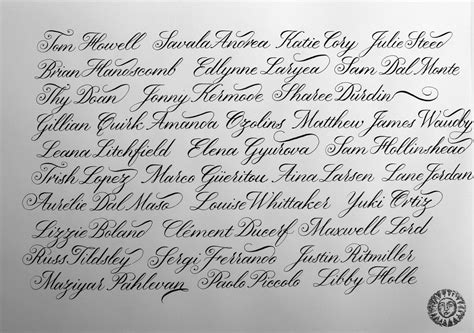 Tom Howell Savala Andrea Katie Cory Julie Steed
Brian Handscomb Edlynne Laryea Sam Dal Monte
Thy Doan Jonny Kermode Sharee Durdin
Gillian Quirk Amanda Ozolins Matthew James Wauby
Leana Litchfield Elena Gyurova Sam Hollinshead
Trish Lopez Marco Güeritou Aina Larsen Lane Jordan
Aurélie Dal Maso Louise Whittaker Yuki Ortiz
Lizzie Boland Clément Ducerf Maxwell Lord
Russ Tildsley Sergi Ferrando Justin Ritmiller
Maziyar Pahlevan Paolo Piccolo Libby Holle